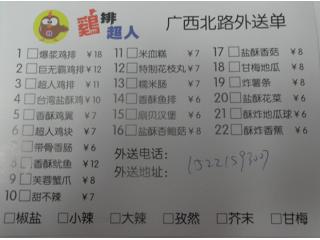 鷄排超人
广西北路外送单
1 爆浆鸡排 ¥18
2 巨无霸鸡排 ¥12
3 超人鸡排 ¥11
4 台湾盐酥鸡 ¥10
5 香酥鸡翼 ¥7
6 超人鸡块 ¥7
7 带骨香肠 ¥6
8 香酥鱿鱼 ¥12
9 芙蓉蟹爪 ¥8
10 甜不辣 ¥7
11 米血糕 ¥7
12 特制花枝丸 ¥7
13 糯米肠 ¥7
14 香酥鱼排 ¥6
15 扇贝汉堡 ¥6
16 盐酥杏鲍菇 ¥8
17 盐酥香菇 ¥7
18 甘梅地瓜 ¥8
19 炸薯条 ¥8
20 盐酥花菜 ¥6
21 酥炸地瓜球 ¥6
22 酥炸香蕉 ¥6
外送电话：
外送地址：
椒盐 小辣 大辣 孜然 芥末 甘梅